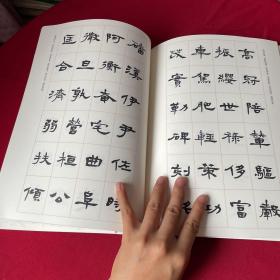 高冠陪輦驅轂
振纓世祿侈富
車駕肥輕策功
茂實勒碑刻銘
磻溪伊尹佐時
阿衡奄宅曲阜
微旦孰營桓公
匡合濟弱扶傾